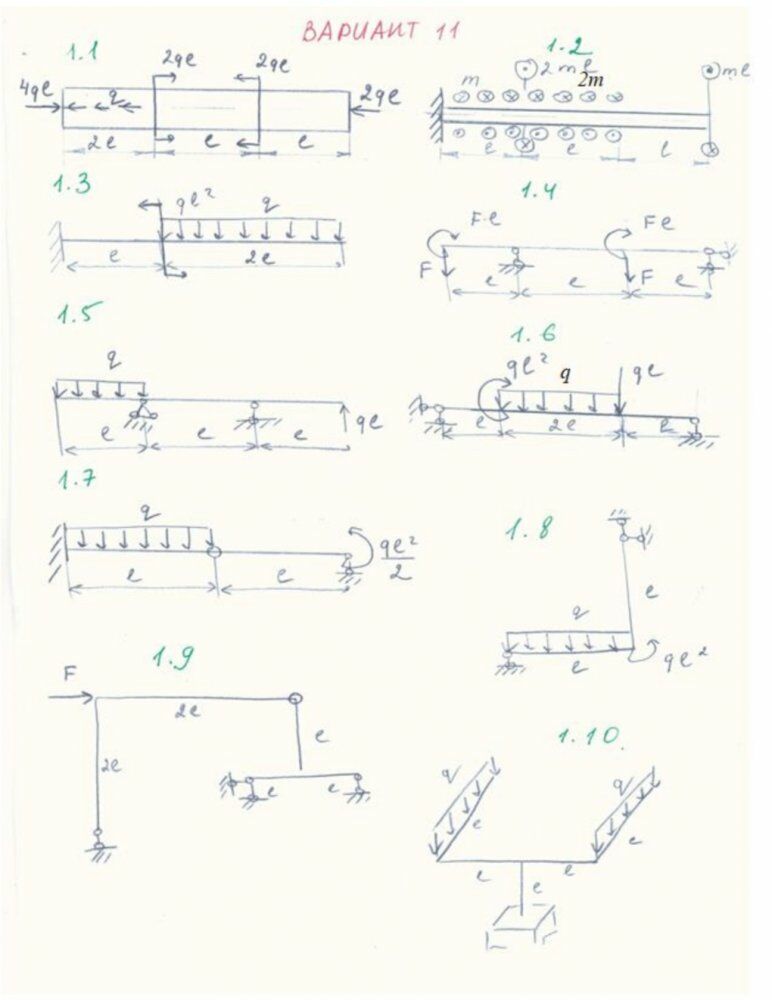 ВАРИАНТ 11
1.1
2ql
2ql
4ql
q
2ql
2l
l
l
1.2
2ml
ml
m
2m
l
l
l
1.3
ql²
q
l
2l
1.4
Fl
Fl
F
F
l
l
l
1.5
q
ql
l
l
l
1.6
ql²
q
ql
l
2l
l
1.7
q
ql²
2
l
l
1.8
l
q
l
ql²
1.9
F
2l
2l
l
l
l
1.10
q
l
q
l
l
l
l